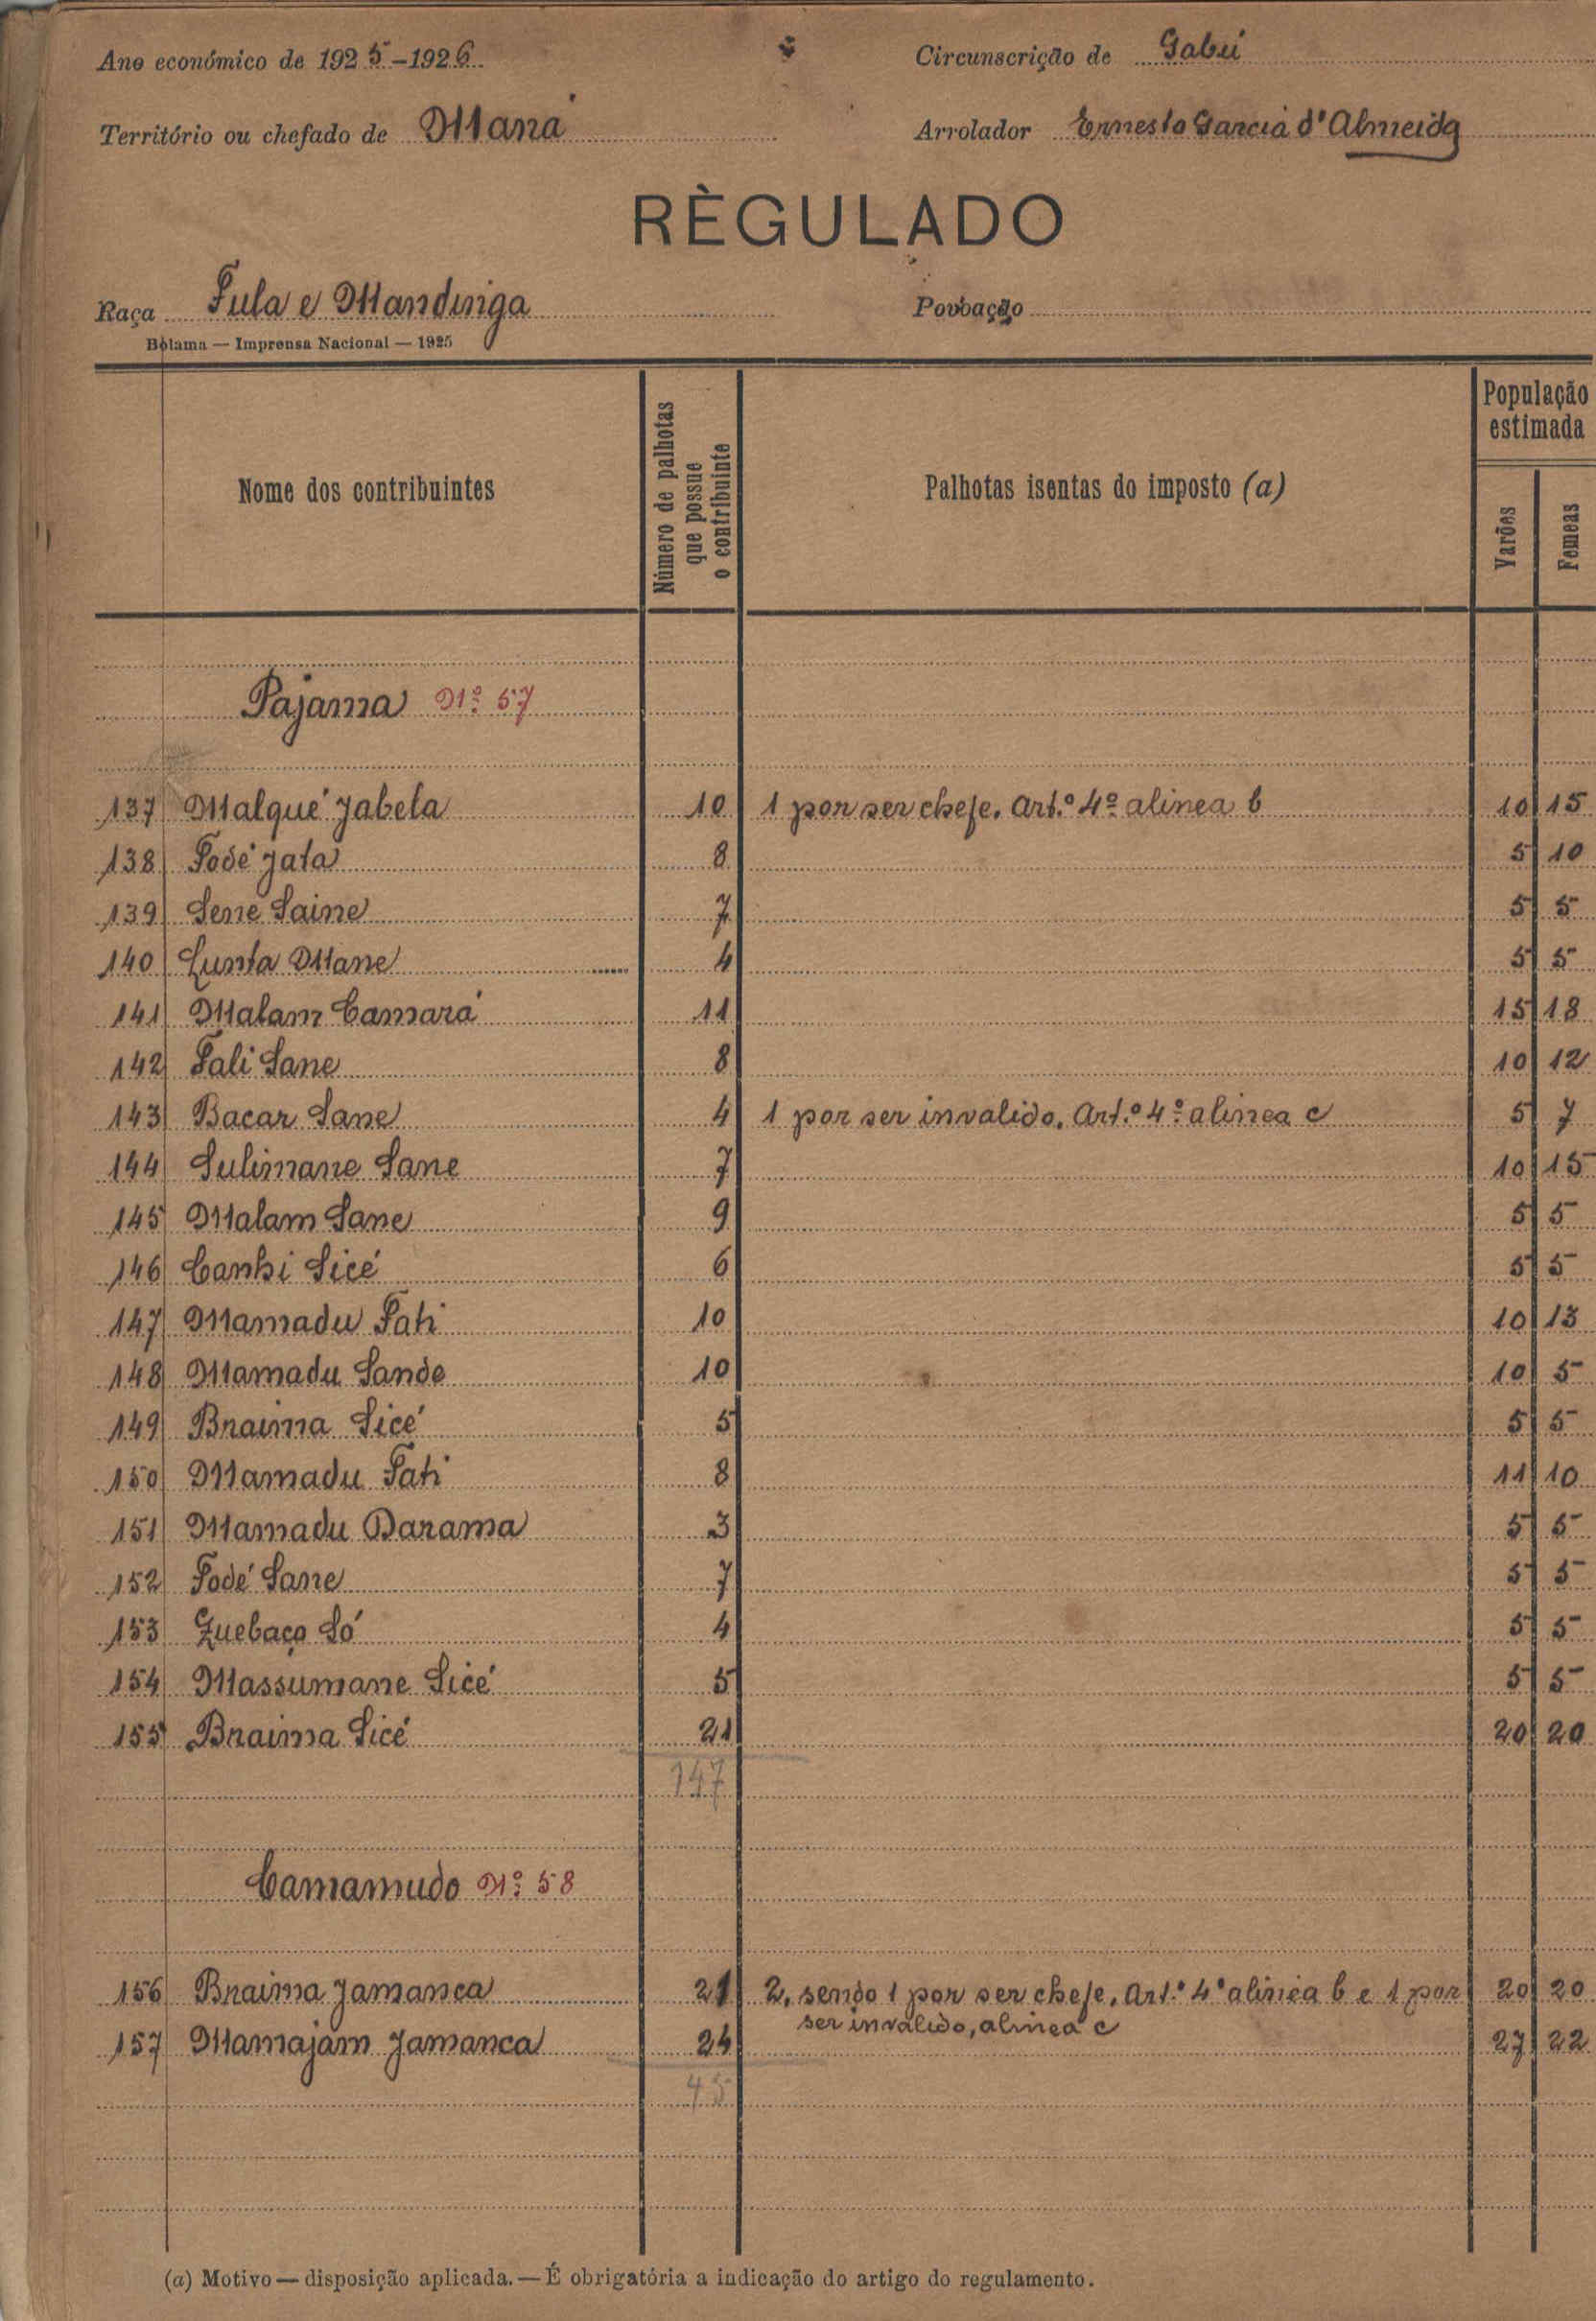 Ano económico de 1925-1926 Circunscrição de Gabú
Território ou chefado de Maná Arrolador Ernesto Garcia d'Almeida
RÈGULADO
Raça Fula e Mandinga Povoação
Bolama — Imprensa Nacional — 1925
Nome dos contribuintes Número de palhotas que possue o contribuinte Palhotas isentas do imposto (a) População estimada Varões Femeas
Pajama Nº 57
137 Malqué Jabela 10 1 por ser chefe. Art.º 4º alinea b 10 15
138 Fodé Jata 8 5 10
139 Sene Saine 7 5 5
140 Lunta Mane 4 5 5
141 Malam Camará 11 15 18
142 Fali Sane 8 10 12
143 Bacar Sane 4 1 por ser invalido. Art.º 4º alinea c 5 7
144 Sulimane Sane 7 10 15
145 Malam Sane 9 5 5
146 Canhi Sicé 6 5 5
147 Mamadu Fati 10 10 13
148 Mamadu Sande 10 10 5
149 Braima Sicé 5 5 5
150 Mamadu Fati 8 11 10
151 Mamadu Darama 3 5 5
152 Fodé Sane 7 5 5
153 Quebaço Só 4 5 5
154 Massumane Sicé 5 5 5
155 Braima Sicé 21 20 20
147
Camamudo Nº 58
156 Braima Jamanca 21 2, sendo 1 por ser chefe, Art.º 4º alinea b e 1 por 20 20
ser invalido, alinea c
157 Mamajam Jamanca 24 27 22
45
(a) Motivo — disposição aplicada. — É obrigatória a indicação do artigo do regulamento.